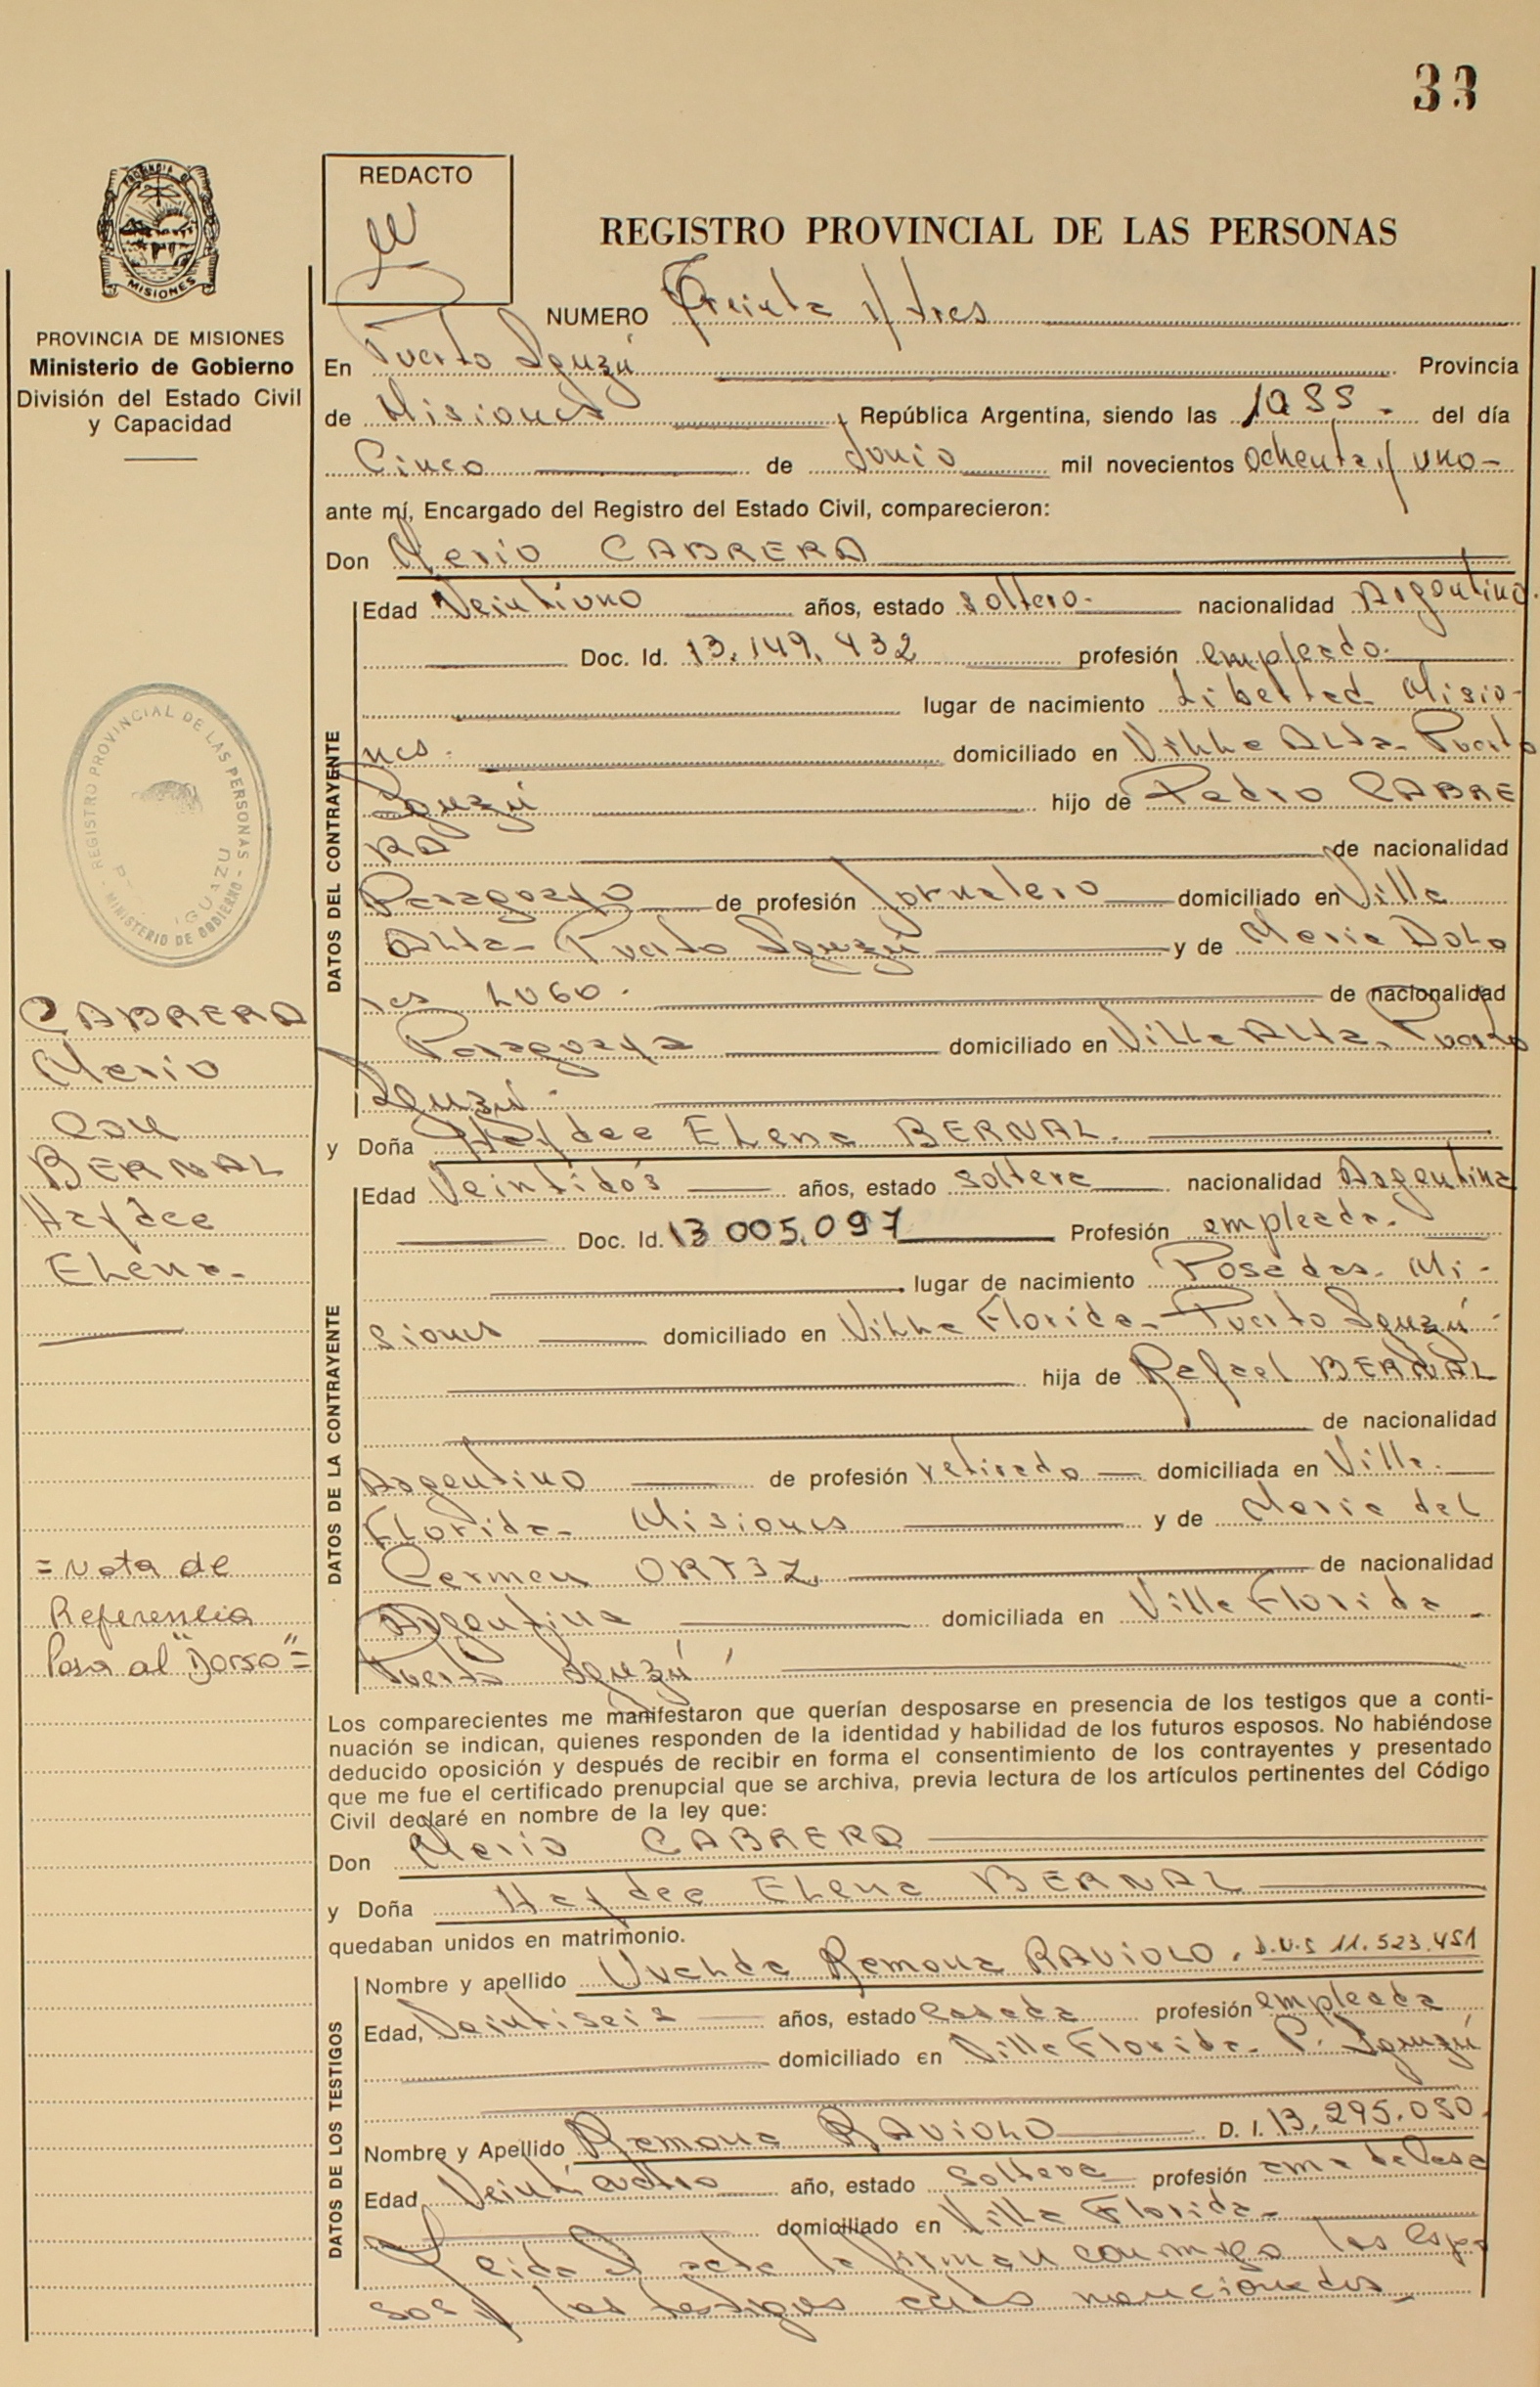 33
PROVINCIA DE
MISIONES
REDACTO
REGISTRO PROVINCIAL DE LAS PERSONAS
NUMERO Treinta y tres
PROVINCIA DE MISIONES
Ministerio de Gobierno
División del Estado Civil
y Capacidad
En Puerto Iguazú Provincia
de Misiones, República Argentina, siendo las del día
Cinco de Junio mil novecientos ochenta y uno-
ante mí, Encargado del Registro del Estado Civil, comparecieron:
Don Mario CABRERA
DATOS DEL CONTRAYENTE
Edad Veintiuno años, estado soltero.- nacionalidad Argentino.
Doc. Id. 13.149.432 profesión empleado.
lugar de nacimiento Libertad Misio-
nes. domiciliado en Villa Alta- Puerto
Iguazú hijo de Pedro CABRE
RA de nacionalidad
Paraguayo de profesión Jornalero domiciliado en Villa
Alta- Puerto Iguazú y de Maria Dolo
res LUGO. de nacionalidad
Paraguaya domiciliado en Villa Alta, Puerto
Iguazú.
y Doña Haydee Elena BERNAL.
DATOS DE LA CONTRAYENTE
Edad Veintidós años, estado soltera nacionalidad Argentina
Doc. Id. 13 005.097 Profesión empleada.
lugar de nacimiento Posadas. Mi-
siones domiciliado en Villa Florida- Puerto Iguazú-
hija de Rafael BERNAL
de nacionalidad
Argentino de profesión retirado domiciliada en Villa
Florida- Misiones y de Maria del
Carmen ORTIZ, de nacionalidad
Argentina domiciliada en Villa Florida
Puerto Iguazú
Los comparecientes me manifestaron que querían desposarse en presencia de los testigos que a conti-
nuación se indican, quienes responden de la identidad y habilidad de los futuros esposos. No habiéndose
deducido oposición y después de recibir en forma el consentimiento de los contrayentes y presentado
que me fue el certificado prenupcial que se archiva, previa lectura de los artículos pertinentes del Código
Civil declaré en nombre de la ley que:
Don Mario CABRERA
y Doña Haydee Elena BERNAL
quedaban unidos en matrimonio.
DATOS DE LOS TESTIGOS
Nombre y apellido Ramona RAVIOLO. 11.523.451
Edad, Veintiseis años, estado Casada profesión empleada
domiciliado en Villa Florida- P. Iguazú
Nombre y Apellido Ramona RAVIOLO D. I. 13.295.080.
Edad Veinticuatro año, estado soltera profesión ama de Casa
domiciliado en Villa Florida-
Leida el acta la firman conmigo los espo
sos y los testigos mencionados
REGISTRO PROVINCIAL DE LAS PERSONAS
MINISTERIO DE GOBIERNO
IGUAZU
CABRERA
Mario
con
BERNAL
Haydee
Elena-
=Nota de
Referencia
Pasa al "Dorso"=